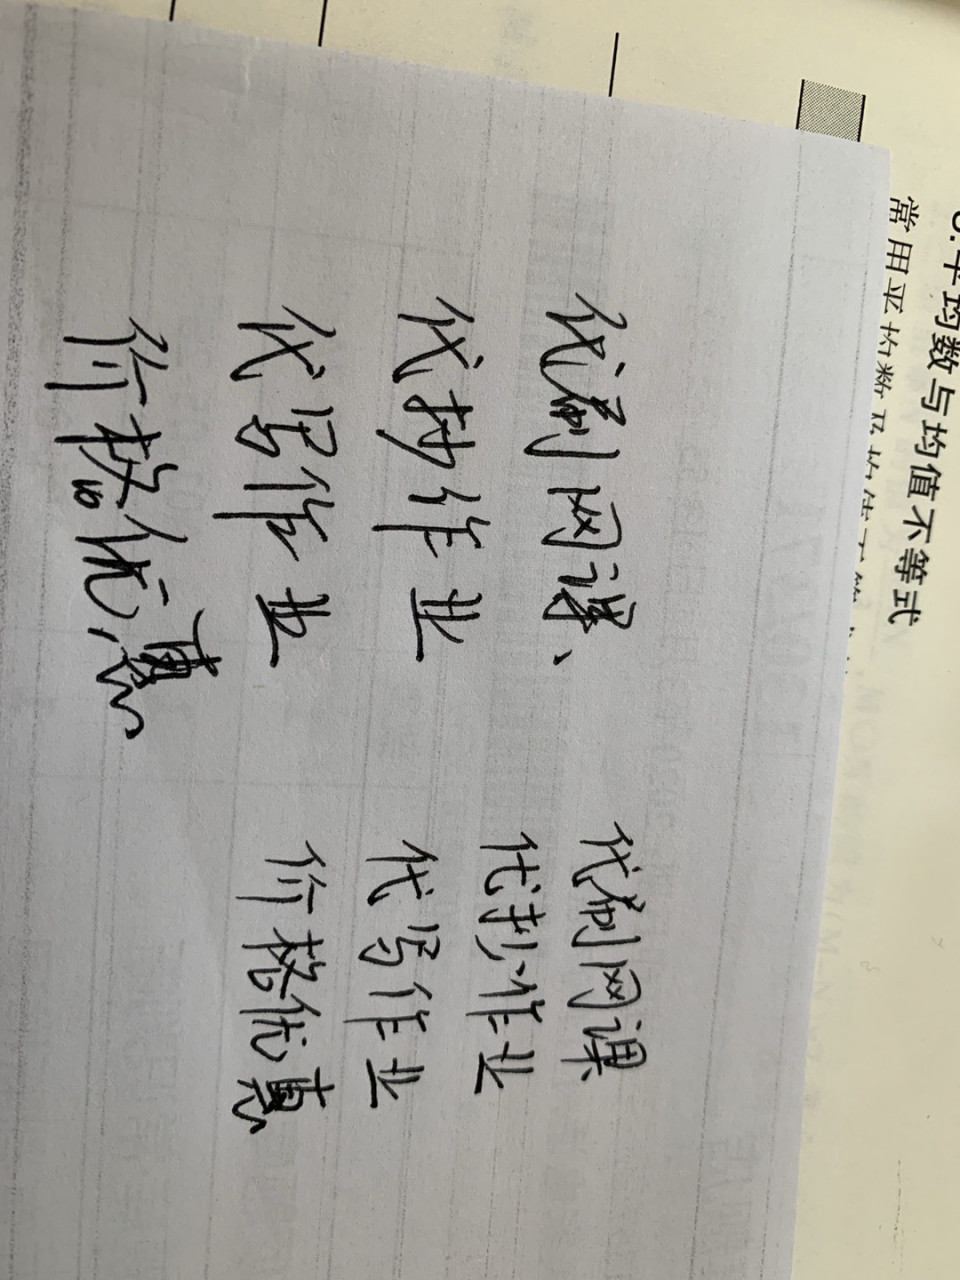 平均数与均值不等式
代刷网课、
代抄作业
代写作业
价格优惠
代刷网课
代抄作业
代写作业
价格优惠